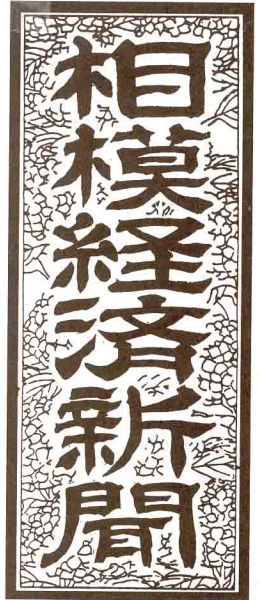 相模経済新聞